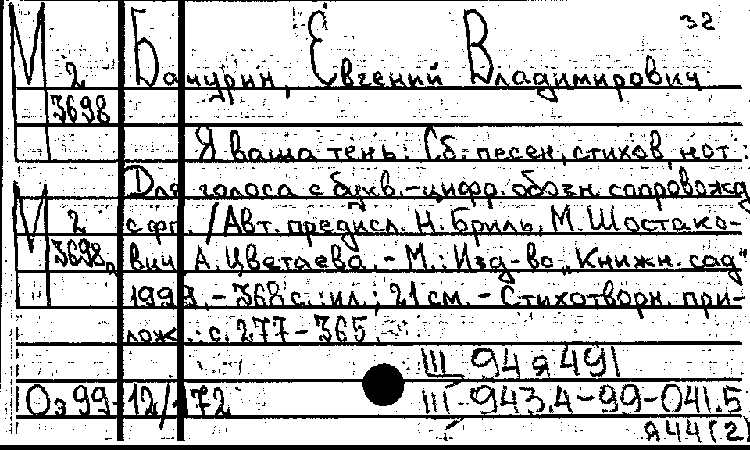 32
М 2 Бачурин, Евгений Владимирович
3698
Я ваша тень: Сб. песен, стихов, нот:
Для голоса с букв.-цифр. обозн. сопровожд.
М 2 с фп. / Авт. предисл. Н. Бриль, М. Шостако-
3698а вич, А. Цветаева. - М.: Изд-во „Книжн. сад"
1999. - 368 с.: ил.; 21 см. - Стихотворн. при-
лож.: с. 277-365.
III 94 я 491
Оэ 99-12/172 III-943.4-99-041.5
я44(2)